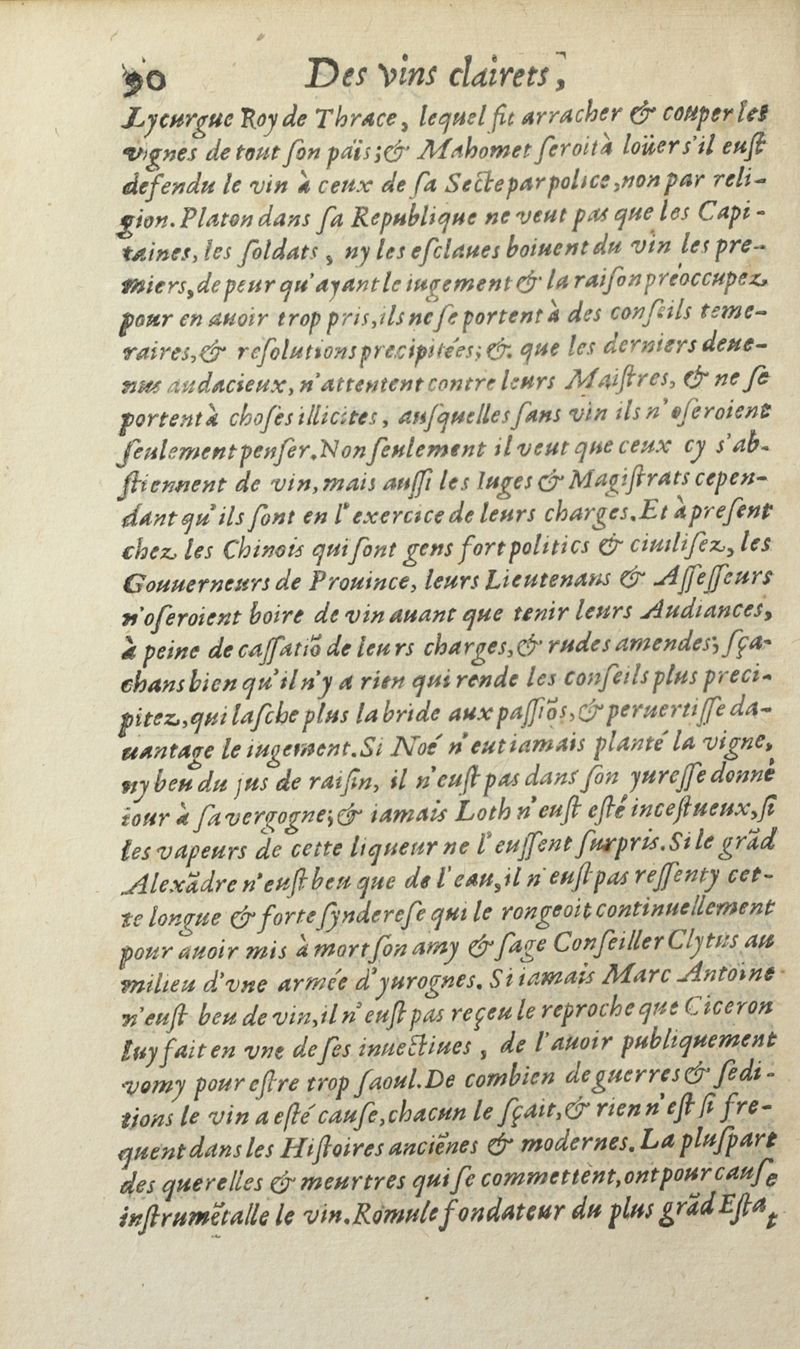 90 Des vins clairets,
Lycurgue Roy de Thrace, lequel fit arracher & couper les
vignes de tout ſon païs; & Mahomet ſeroit à loüer s'il euſt
defendu le vin à ceux de ſa Secte par police, non par reli-
gion. Platon dans ſa Republique ne veut pas que les Capi-
taines, les ſoldats, ny les eſclaues boiuent du vin les pre-
miers, de peur qu'ayant le iugement & la raiſon préoccupez,
pour en auoir trop pris, ils ne ſe portent à des conſeils teme-
raires, & reſolutions precipitées; &. que les derniers deue-
nus audacieux, n'attentent contre leurs Maiſtres, & ne ſe
portent à choſes illicites, auſquelles ſans vin ils n'oſeroient
ſeulement penſer. Non ſeulement il veut que ceux cy s'ab-
ſtiennent de vin, mais auſſi les Iuges & Magiſtrats cepen-
dant qu'ils ſont en l'exercice de leurs charges. Et à preſent
chez les Chinois qui ſont gens fort politics & ciuiliſez, les
Gouuerneurs de Prouince, leurs Lieutenans & Aſſeſſeurs
n'oſeroient boire de vin auant que tenir leurs Audiances,
à peine de caſſatiō de leurs charges, & rudes amendes; ſça-
chans bien qu'il n'y a rien qui rende les conſeils plus preci-
pitez, qui laſche plus la bride aux paſſiōs, & peruertiſſe da-
uantage le iugement. Si Noé n'eut iamais planté la vigne,
ny beu du jus de raiſin, il n'euſt pas dans ſon yureſſe donné
iour à ſa vergogne; & iamais Loth n'euſt eſté inceſtueux, ſi
les vapeurs de cette liqueur ne l'euſſent ſurpris. Si le grād
Alexādre n'euſt beu que de l'eau, il n'euſt pas reſſenty cet-
te longue & forte ſyndereſe qui le rongeoit continuellement
pour auoir mis à mort ſon amy & ſage Conſeiller Clytus au
milieu d'vne armée d'yurognes. Si iamais Marc Antoine
n'euſt beu de vin, il n'euſt pas reçeu le reproche que Ciceron
luy fait en vne de ſes inuectiues, de l'auoir publiquement
vomy pour eſtre trop ſaoul. De combien de guerres & ſedi-
tions le vin a eſté cauſe, chacun le ſçait, & rien n'eſt ſi fre-
quent dans les Hiſtoires anciēnes & modernes. La pluſpart
des querelles & meurtres qui ſe commettent, ont pour cauſe
inſtrumētalle le vin. Romule fondateur du plus grād Eſtat